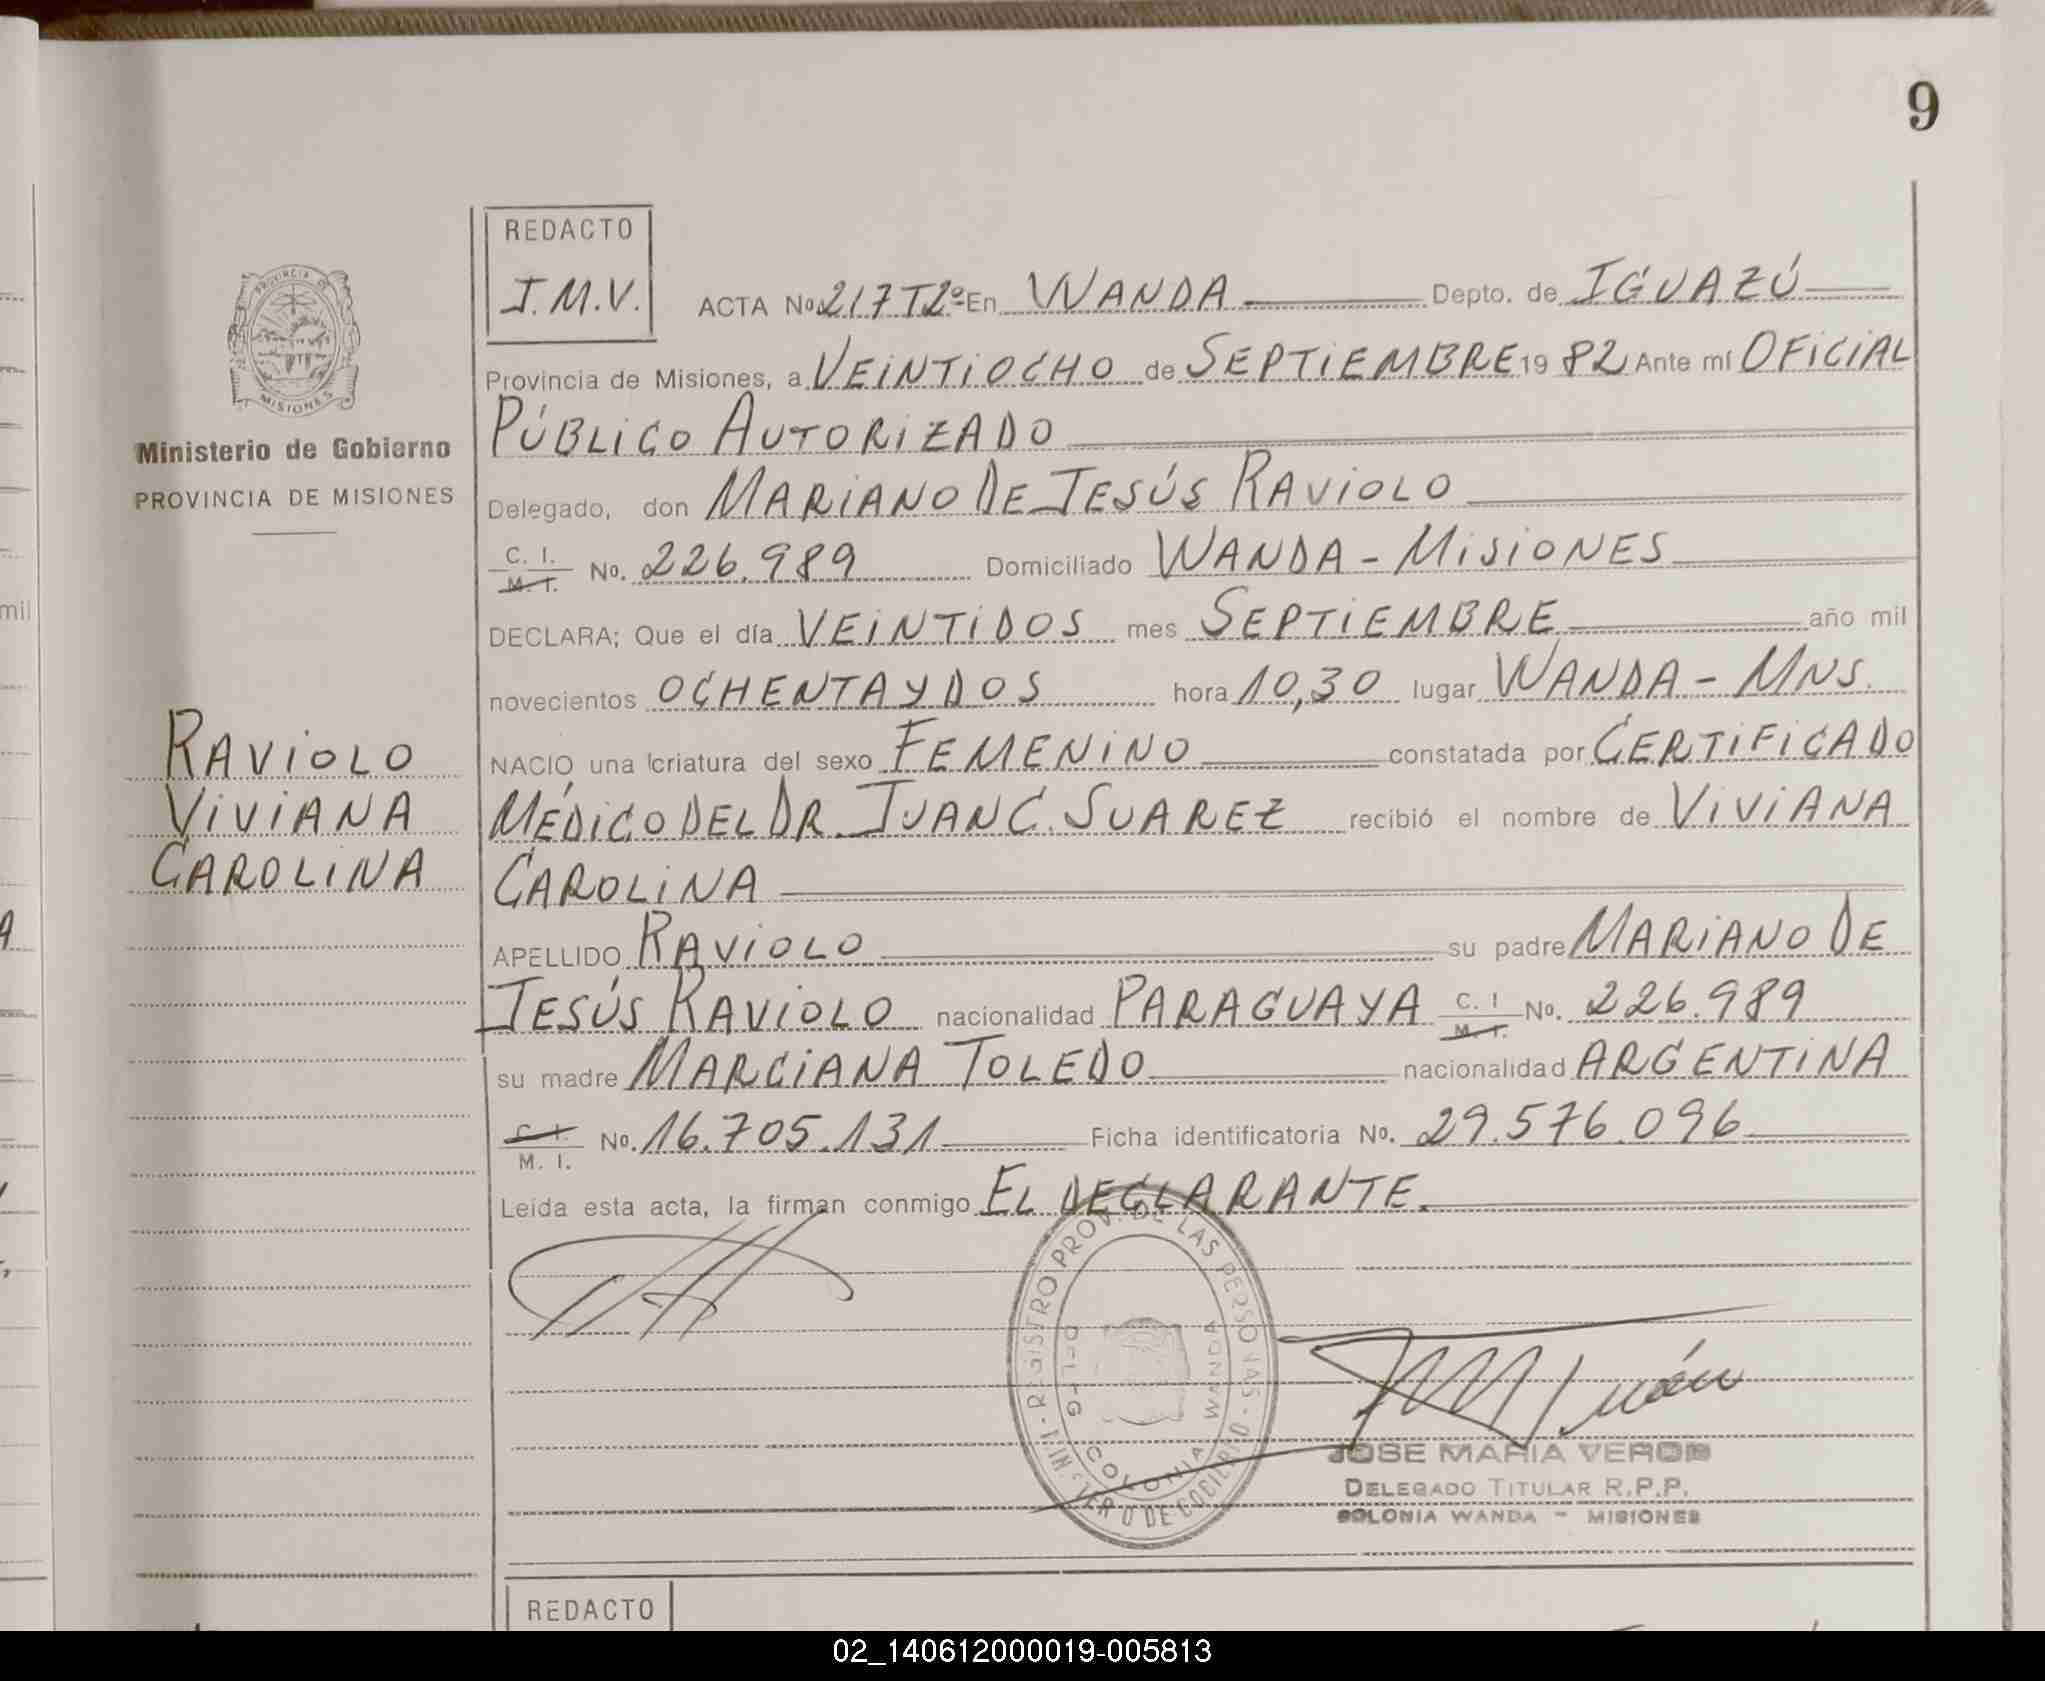 9
REDACTO
J.M.V.
ACTA No. 217 T2º En WANDA Depto. de IGUAZÚ
Provincia de Misiones, a VEINTIOCHO de SEPTIEMBRE 19 82 Ante mí OFICIAL
PÚBLICO AUTORIZADO
Delegado, don MARIANO DE JESÚS RAVIOLO
C. I.
M. I. No. 226.989 Domiciliado WANDA - MISIONES
DECLARA; Que el día VEINTIDOS mes SEPTIEMBRE año mil
novecientos OCHENTA Y DOS hora 10,30 lugar WANDA - MNS.
NACIO una criatura del sexo FEMENINO constatada por CERTIFICADO
MÉDICO DEL DR. JUAN C. SUAREZ recibió el nombre de VIVIANA
CAROLINA
APELLIDO RAVIOLO su padre MARIANO DE
JESÚS RAVIOLO nacionalidad PARAGUAYA C. I
M. I. No. 226.989
su madre MARCIANA TOLEDO nacionalidad ARGENTINA
C. I.
M. I. No. 16.705.131 Ficha identificatoria No. 29.576.096
Leída esta acta, la firman conmigo EL DECLARANTE.
PROVINCIA DE
MISIONES
Ministerio de Gobierno
PROVINCIA DE MISIONES
RAVIOLO
VIVIANA
CAROLINA
REGISTRO PROV. DE LAS PERSONAS
COLONIA WANDA
JOSE MARIA VERON
DELEGADO TITULAR R.P.P.
COLONIA WANDA - MISIONES
REDACTO
mil
02_140612000019-005813